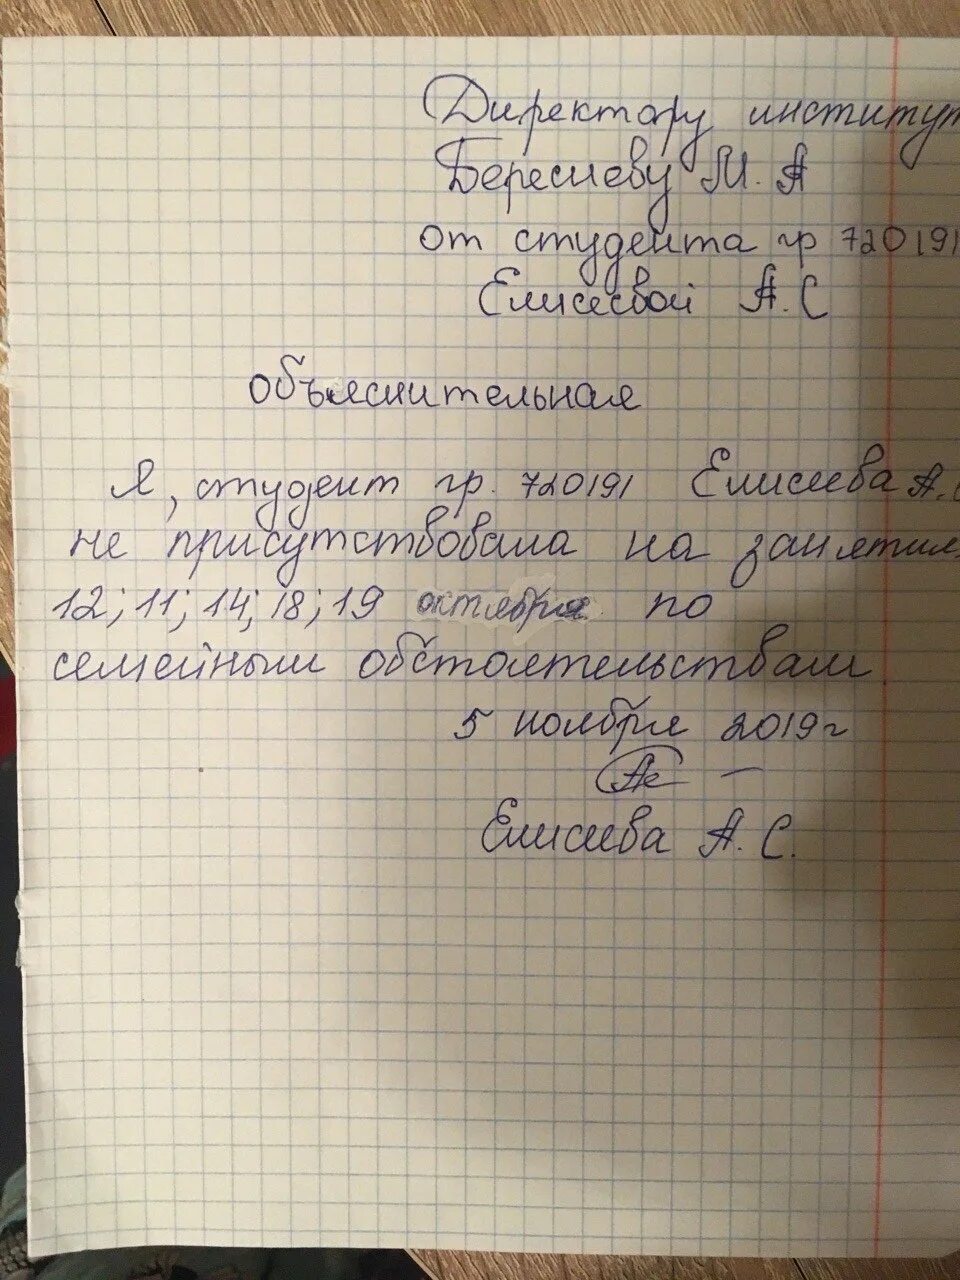 Директору институт
Бересневу М. А
от студента гр 720191
Елисеевой А. С
объяснительная
Я, студент гр. 720191 Елисеева А.
не присутствовала на занятия
12; 11; 14; 18; 19 октября по
семейным обстоятельствам
5 ноября 2019 г
Елисеева А. С.